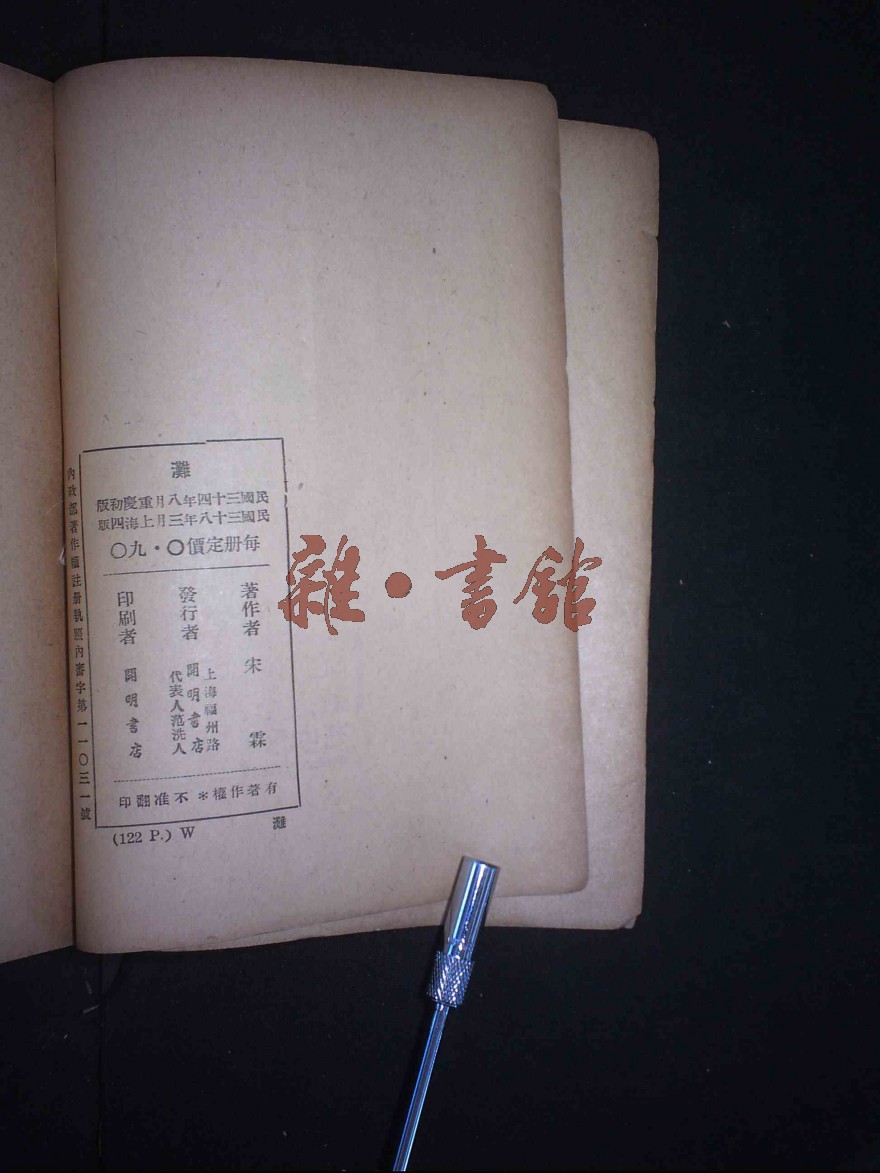 灘
民國三十四年八月重慶初版
民國三十八年三月上海四版
每册定價〇·九〇
著作者 宋霖
發行者 上海福州路
開明書店
代表人范洗人
印刷者 開明書店
有著作權＊不准翻印
內政部著作權註册執照內審字第一一〇三一號
(122 P.) W
灘
雜·書館